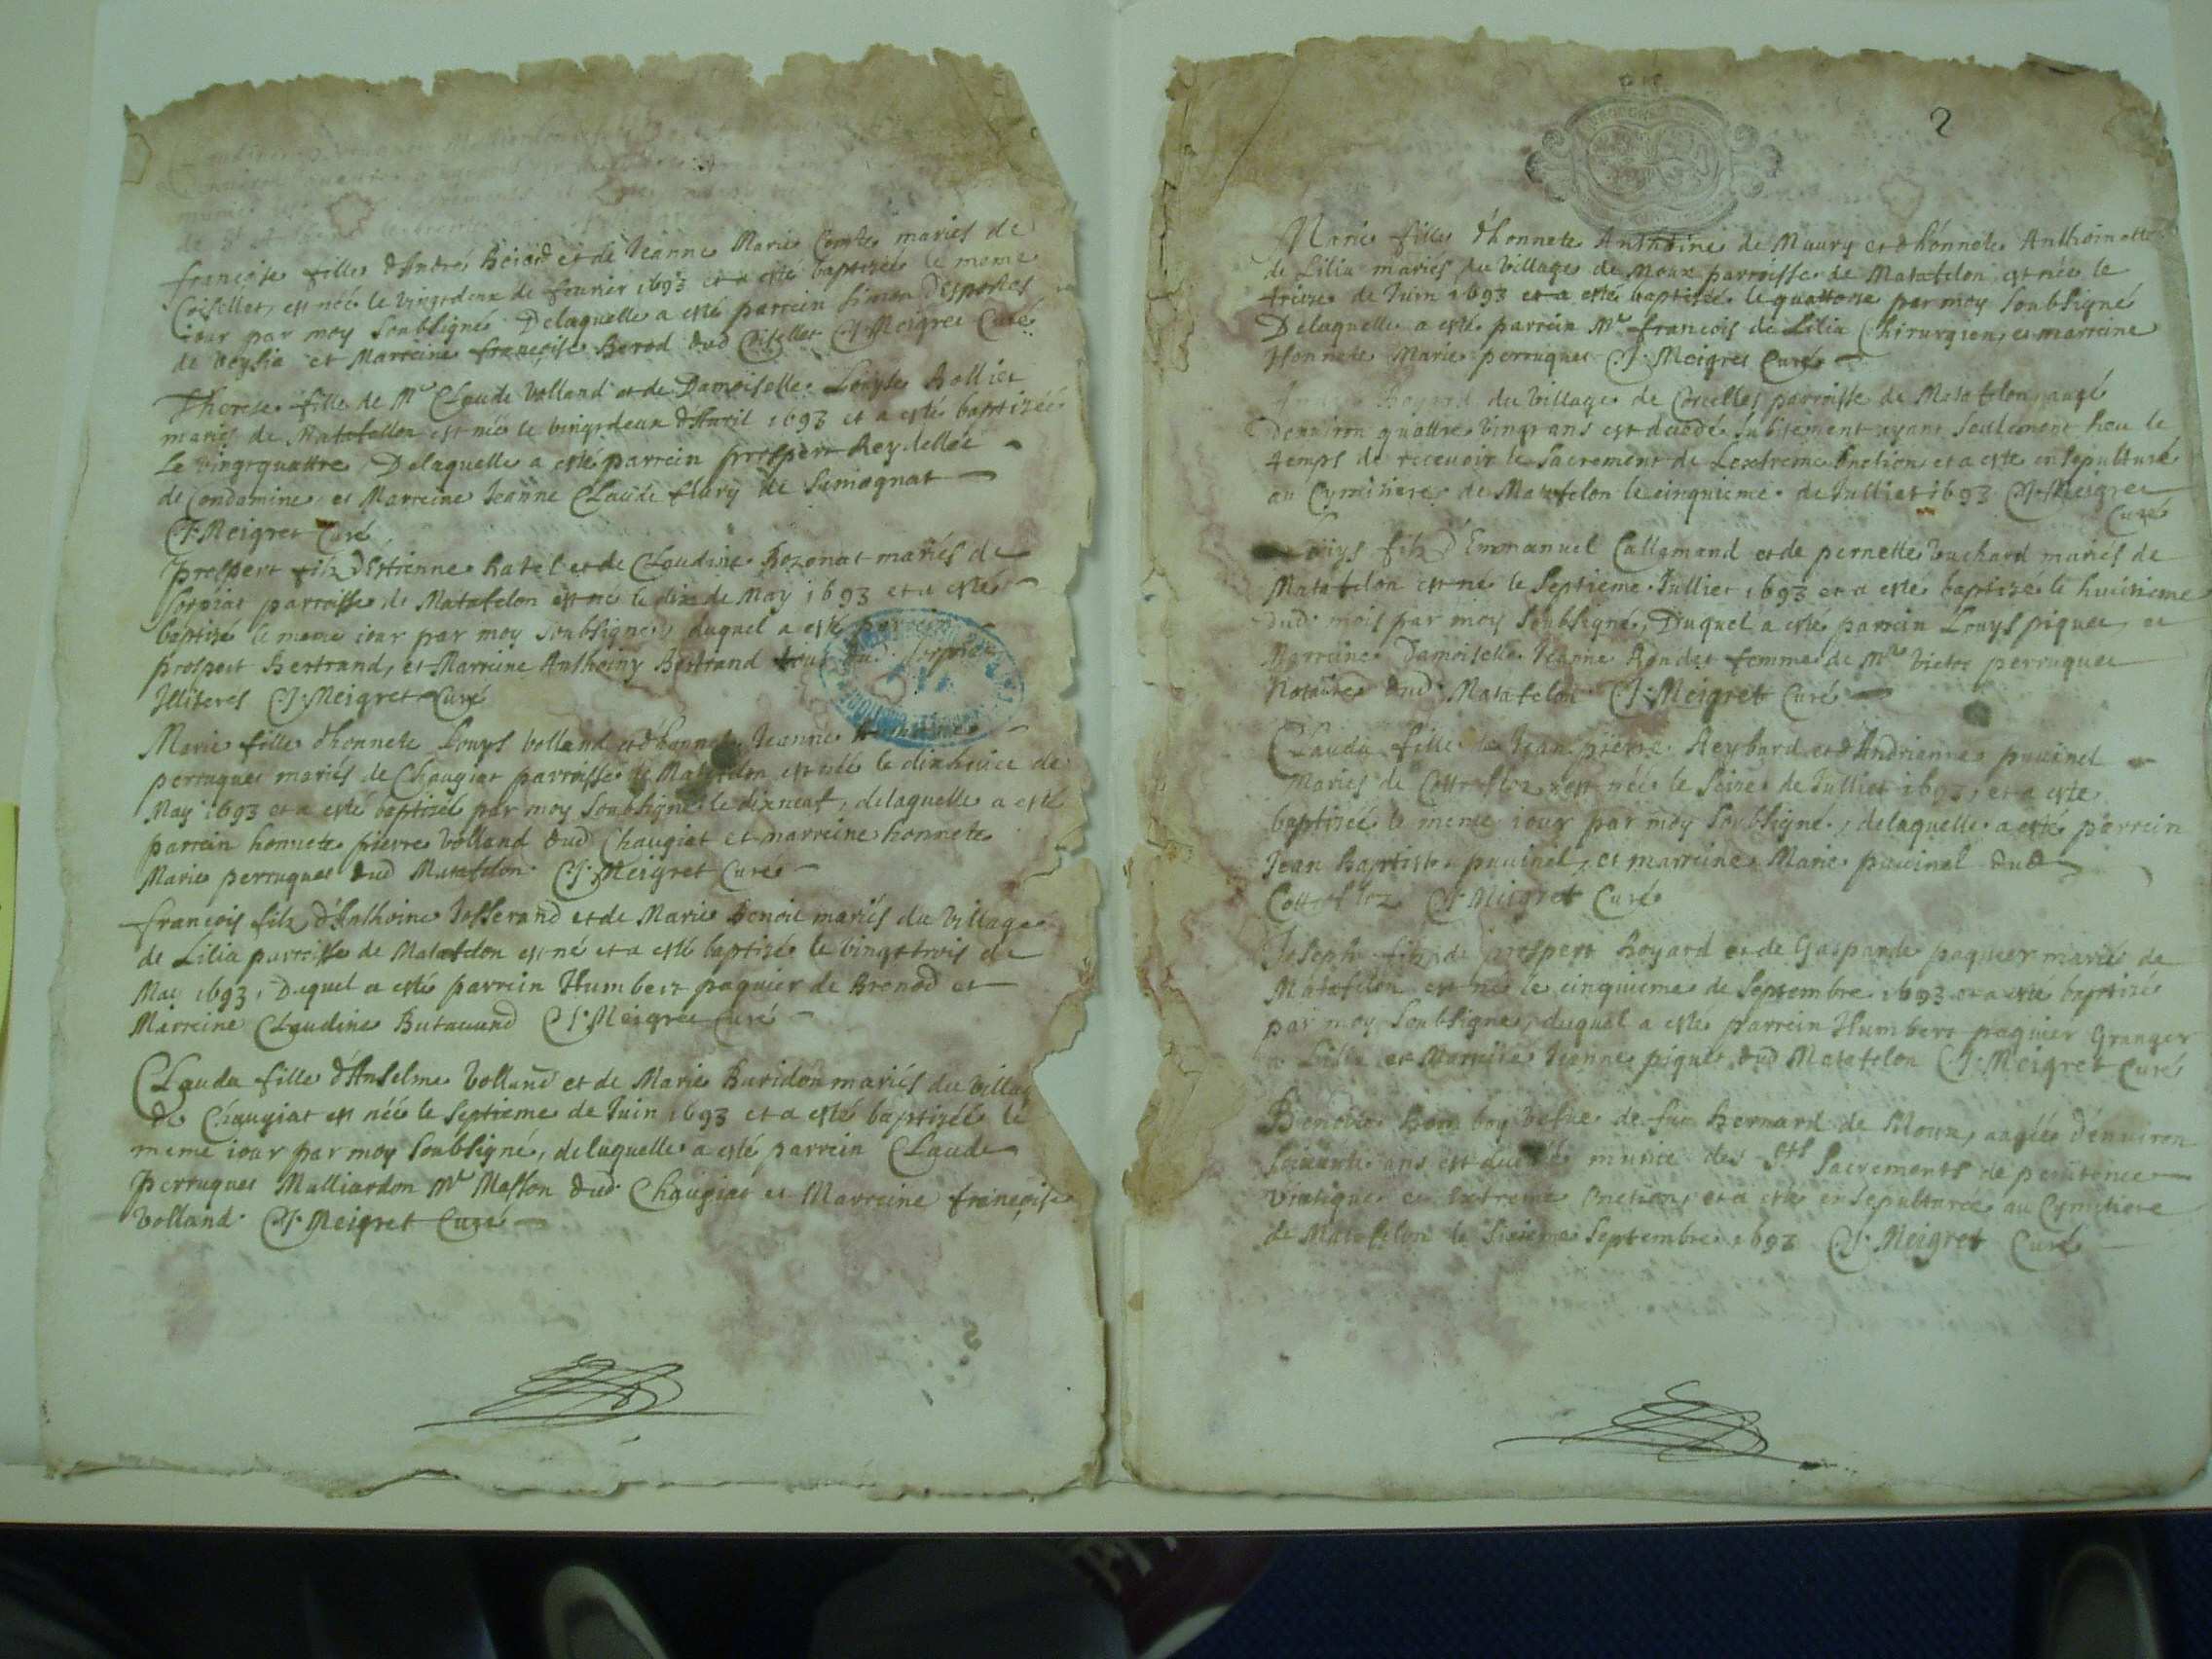 françoise fille d'André Berod et de Jeanne Marie Comte mariés de
Coisellet, est née le vingtdeux de feurier 1693 et a esté baptizée le meme
iour par moy soubsigné Delaquelle a esté parrein Simon Desportes
de Veysia et Marreine françoise Berod dud Coisellet C J Meigret Curé
Therese fille de Mre Claude Volland et de Damoiselle Louyse Rollier
mariés de Matafellon est née le vingtdeux d'Auril 1693 et a esté baptizée
Le vingtquattre, Delaquelle a esté parrein prospert Reydellet
de Condamine, et Marreine Jeanne Claude flury de Simagnat
C J Meigret Curé
Prospert filz d'Estienne hatel et de Claudine Rozonat mariés de
Sorpiat parroisse de Matafelon est né le dix de May 1693 et a esté
baptizé le meme iour par moy soubsigné, duquel a esté parrein
prospert Bertrand, et Marreine Anthoiny Bertrand tous dud Sorpiat
Illiteres C J Meigret Curé
Marie fille d'honnete Louys Volland et d'honnete Jeanne
perruquet mariés de Chaugiat parroisse de Matafelon est née le dixhuict de
May 1693 et a esté baptizée par moy soubsigné le dixneuf, delaquelle a esté
parrein honnete pierre Volland dud Chaugiat et marreine honnete
Marie perruquet dud Matafelon C J Meigret Curé
françois filz d'Anthoine Josserand et de Marie Benoit mariés du village
de Lilia parroisse de Matafelon est né et a esté baptizé le vingttrois de
May 1693, Duquel a esté parrein Humbert paquier de Brenod et
Marreine Claudine Butauand C J Meigret Curé
Clauda fille d'Anselme Volland et de Marie Buridon mariés du villag
de Chaugiat est née le septieme de Juin 1693 et a esté baptizée le
meme iour par moy soubsigné, delaquelle a esté parrein Claude
Perruquet Malliardon Mre Masson dud Chaugiat et Marreine françoise
Volland C J Meigret Curé
2
Marie fille d'honnete Anthoine de Maury et d'honnete Anthoinette
de Lilia mariés du village de Moux parroisse de Matafelon est née le
treize de Juin 1693 et a esté baptizée le quattorze par moy soubsigné
Delaquelle a esté parrein Mre françois de Lilia Chirurgien, et marreine
Honnete Marie perruquet C J Meigret Curé
Royard du village de Corcelles parroisse de Matafelon aagé
D'enuiron quattre vingt ans est decedé subitement ayant seulement heu le
temps de receuoir le sacrement de Lextreme Onction, et a esté ensepulturé
au Cymitiere de Matafelon le cinquieme de Julliet 1693 C J Meigret
Curé
Louys filz d'Emmanuel Callamand et de pernette Vuchard mariés de
Matafelon est né le septieme Julliet 1693 et a esté baptizé le huictieme
dud mois par moy soubsigné, Duquel a esté parrein Louys piquet, et
Marreine Damoiselle Jeanne Rondet femme de Mre Victor perruquet
Notaire dud Matafelon C J Meigret Curé
Clauda fille de Jean pierre Reybard et d'Andrienne puuinel
Mariés de est née le seize de Julliet 1693, et a esté
baptizée le meme iour par moy soubsigné, delaquelle a esté parrein
Jean Baptiste puuinel, et marreine Marie puuinel dud
C J Meigret Curé
Joseph filz de prospert Royard et de Gasparde paquier mariés de
Matafelon est né le cinquieme de Septembre 1693 et a esté baptizé
par moy soubsigné, duquel a esté parrein Humbert paquier Granger
a Lilia et Marreine Jeanne piquet dud Matafelon C J Meigret Curé
Benoite vefue de feu Bernard de Moux, aagée d'enuiron
soixante ans est decedée munie des Sts Sacrements de penitence
Viatique et Extreme Onction, et a esté ensepulturée au Cymitiere
de Matafelon le sixieme Septembre 1693 C J Meigret Curé